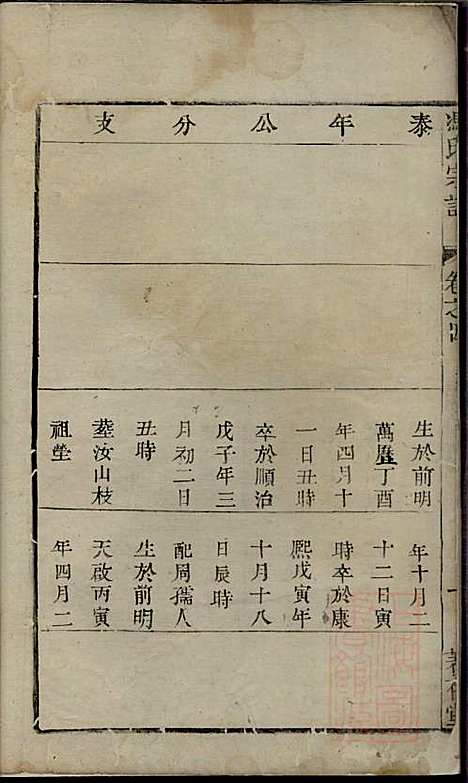 氏宗譜
卷之四
泰年公分支
生於前明
萬曆丁酉
年四月十
一日丑時
卒於順治
戊子年三
月初二日
丑時
葬汝山枝
祖塋
年十月二
十二日寅
時卒於康
熙戊寅年
十月十八
日辰時
配周孺人
生於前明
天啟丙寅
年四月二